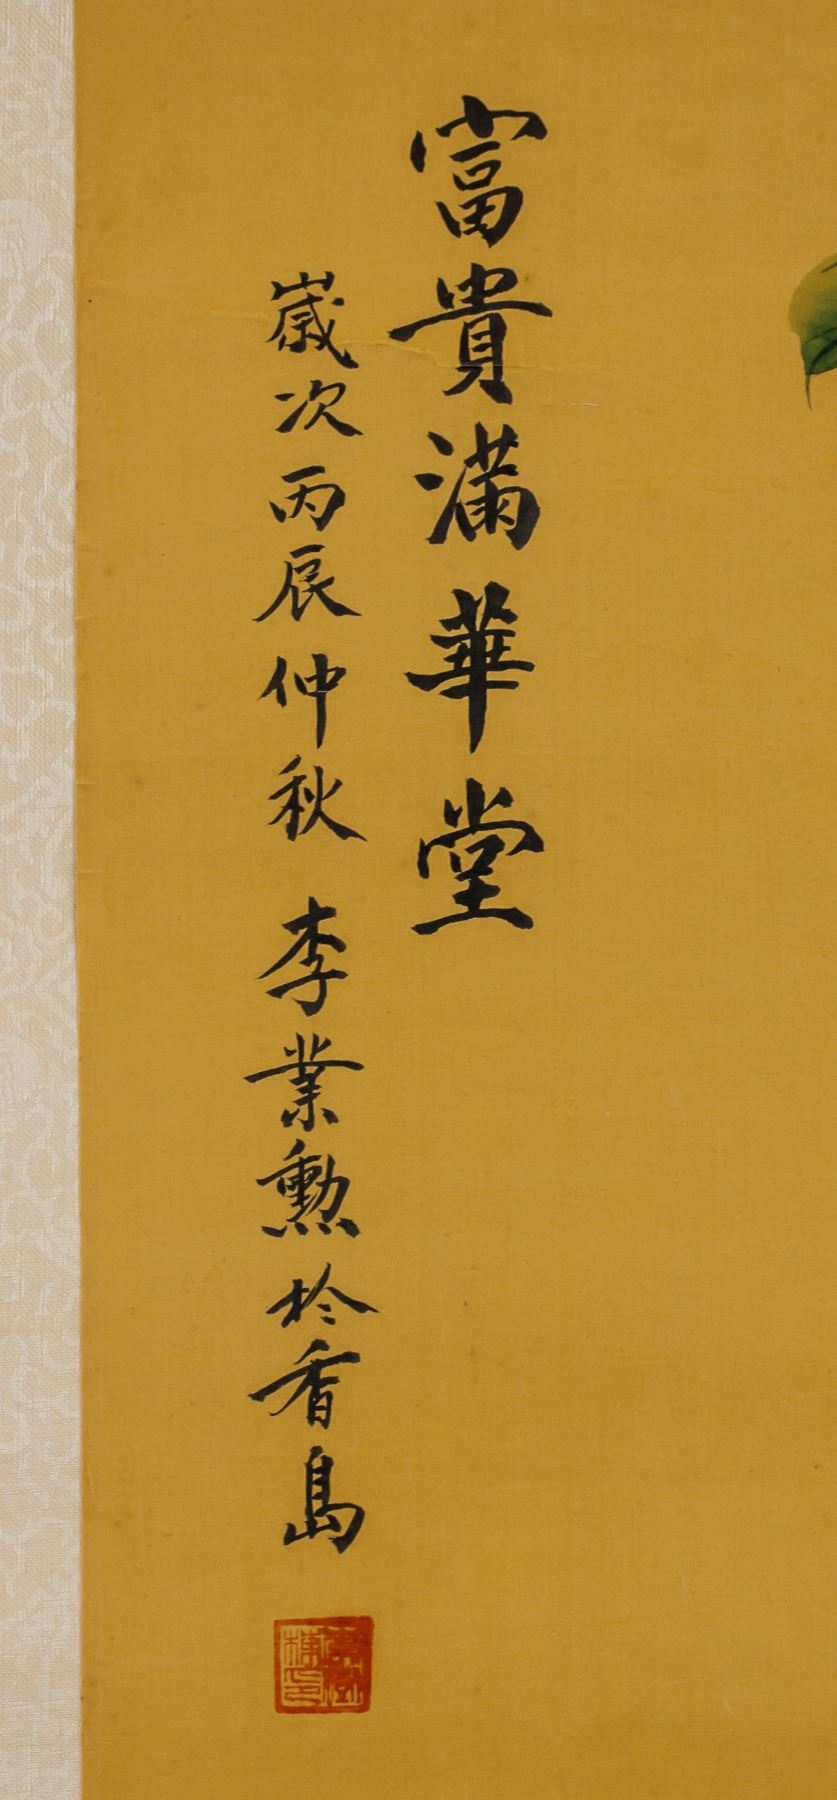 富貴滿華堂
歲次丙辰仲秋 李業勲於香島